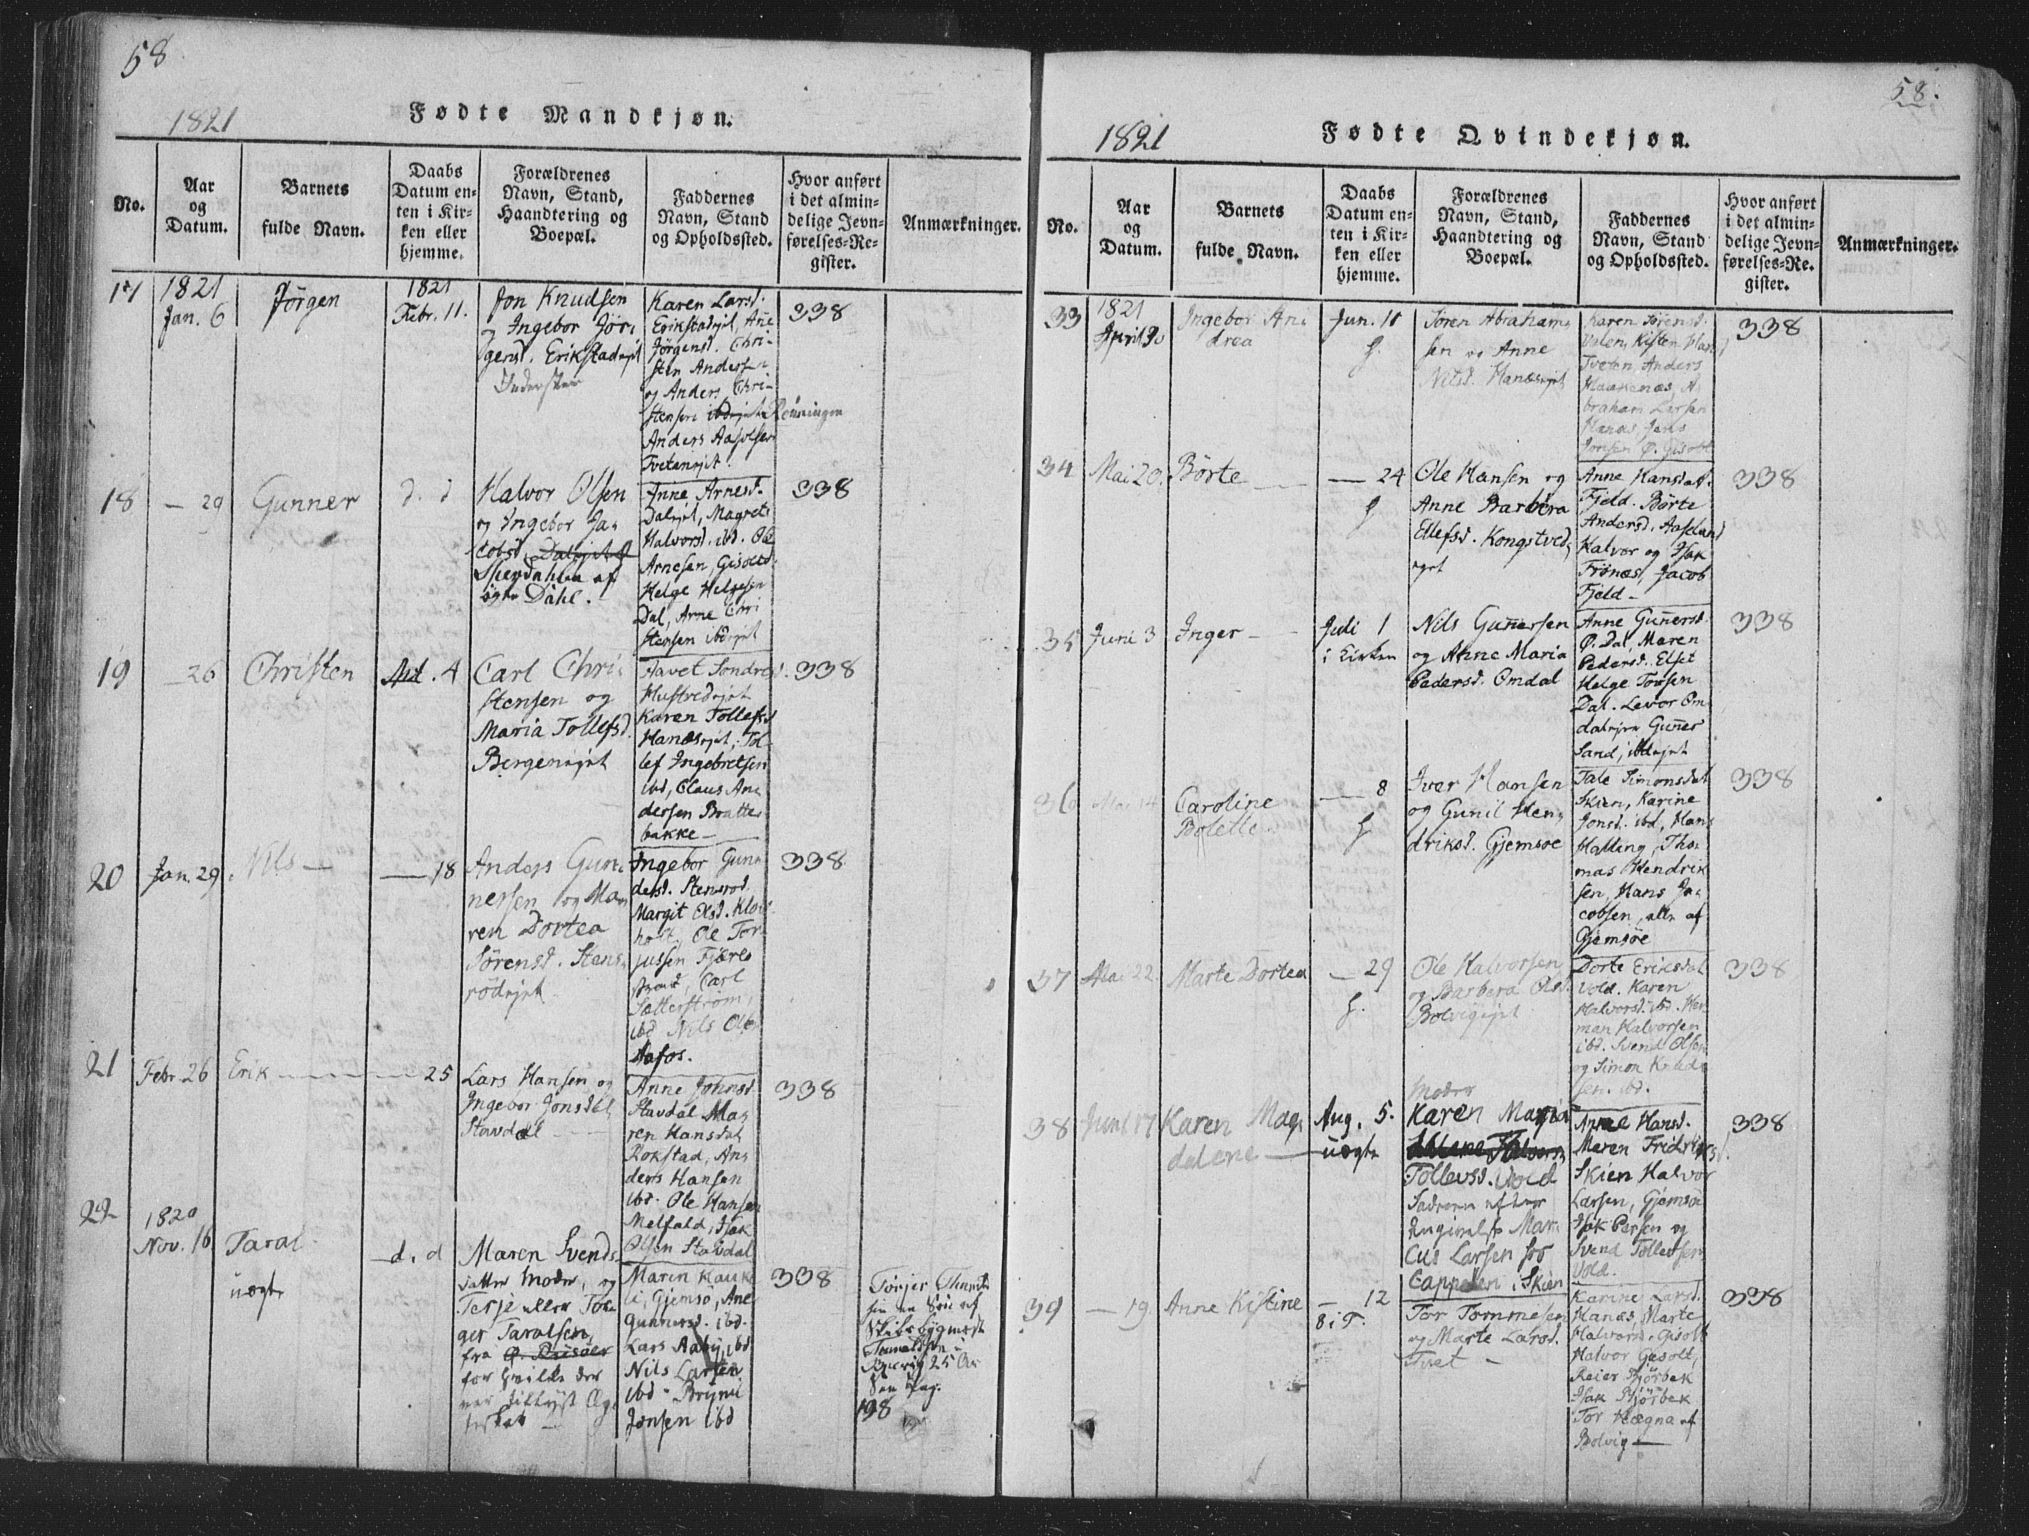 58
1821
Fødte Mandkjøn.
No.
Aar
og
Datum.
Barnets
fulde Navn.
Daabs
Datum en-
ten i Kir-
ken eller
hjemme.
Forældrenes
Navn, Stand,
Haandtering og
Boepæl.
Faddernes
Navn, Stand
og Opholdssted.
Hvor anført
i det almin-
delige Jevn-
førelses-Re-
gister.
Anmærkninger.
17
1821
Jan. 6
Jörgen
1821
Febr. 11.
Jon Knudsen
og Ingebor Jör-
gensd. Erikstadejet
Karen Larsd.
Erikstadejet, Ane
Jörgensd. Chri-
sten Andersen
og Anders Chri-
stensen ibd
Rönningen
Anders Aasolsen
Tvetenejet.
338
18
— 29
Gunner
d. d
Halvor Olsen
og Ingebor Ja-
cobsd.
af
Dahl.
Anne Arnesd.
Dalejet, Magrete
Halvorsd. ibd. Ole
Arnesen, Gisolt
Helge Helgesen
Dal, Arne Chri
stensen ibd
338
19
— 26
Christen
4
Carl Chri-
stensen og
Maria Tollefsd.
Bergenejet
Aavet Sondresd.
Karen Tollefsd
Hanæsejet, Tol-
lef Ingebretsen
ibd, Claus An-
dersen Bratte-
bakke —
338
20
Jan. 29
Nils —
— 18
Anders Gun-
nersen og Ma-
ren Dortea
Sörensd. Stens-
rödejet
Ingebor Gun-
dersd. Stensrod
Margit Olsd. Klov-
holt, Ole Tor-
jussen Fjære
strand, Carl
Sætterström,
ibd Nils Olsen
Aafos.
338
21
Febr. 26
Erik
— 25
Lars Hansen og
Ingebor Jonsdat
Stavdal
Anne Johnsd
Stavdal Ma-
ren Hansdat
Rokstad, An-
ders Hansen
ibd. Ole Hansen
Melfald, Isak
Olsen Stavdal
338
22
1820
Nov. 16
Taral
uægte
d. d
Maren Svends
datter Moder, og
Terje eller Tor-
ger Taralsen,
fra
Maren Kauk-
li, Gjemsö, Ane
Gunnersd. ibd.
Lars Aaby, ibd
Nils Larsen
ibd
Jansen ibd
338
25
198
58.
1821
Fødte Qvindekjøn.
No.
Aar
og
Datum.
Barnets
fulde Navn.
Daabs
Datum en-
ten i Kir-
ken eller
hjemme.
Forældrenes
Navn, Stand,
Haandtering og
Boepæl.
Faddernes
Navn, Stand
og Opholdssted.
Hvor anført
i det almin-
delige Jevn-
førelses-Re-
gister.
Anmærkninger.
33
1821
April 30
Ingebor An-
drea
Jun. 11
H.
Sören Abraham-
sen og Anne
Nilsd. Hanæsejet
Karen Sörensd.
Valen, Kisten Han
Tveten, Anders
Haakenæs, A-
braham Larsen
Hanæs, Jens
Jonsen Ö. Gisolt
338
34
Mai 20.
Börte
— 24
H
Ole Hansen og
Anne Barbera
Ellefsd. Kongsted
ejet
Anne Hansdat.
Fjeld. Börte
Andersd. Aaseland
Halvor og Isak
Frönæs, Jacob
Fjeld —
338
35
Juni 3
Inger
Juli 1
i Kirken
Nils Gunersen
og Anne Maria
Pedersd. Omdal
Anne Gunersd.
Ö. Dal, Maren
Pedersd. Elset
Helge Torsen
Dal. Levor Om-
dalejet Guner
Sand, ibdejet
338
36
Mai 14
Caroline
Bolette
— 8
H
Iver Hansen
og Gunil Hen-
driksd. Gjemsøe
Tale Simonsdat
Skien, Karine
Jonsd. ibd, Hans
Halling, Tho-
mas Hendrik
sen, Hans Ja-
cobsen, alle af
Gjemsøe
338
37
Mai 22
Marte Dortea
— 29
H.
Ole Halvorsen
og Barbera Olsd
Bolvigejet
Dorte Eriksdat
Vold. Karen
Halvorsd. ibd. Her-
man Halvorsen
ibd. Svend Olsen
og Simon Knud-
sen. ibd.
338
38
Juni 17
Karen Mag-
dalene
Aug. 5.
uægte
Moder
Karen Maria
Tollevsd. Vold
Faderen
Mar-
cus Larsen hos
Cappelen i Skien
Anne Hansd.
Maren Fridriksd.
Skien Halvor
Larsen, Gjemsö
Isak Persen og
Svend Tollevsen
Vold.
338
39
— 19
Anne Kistine
— 12
Tor Tommesen
og Marte Larsd.
Tvet —
Karine Larsd.
Hanæs, Marte
Halvorsd. Gisolt
Halvor Gisolt,
Reier Björbek
Isak Björbek
Tor Hægna af
Bolvig —
338